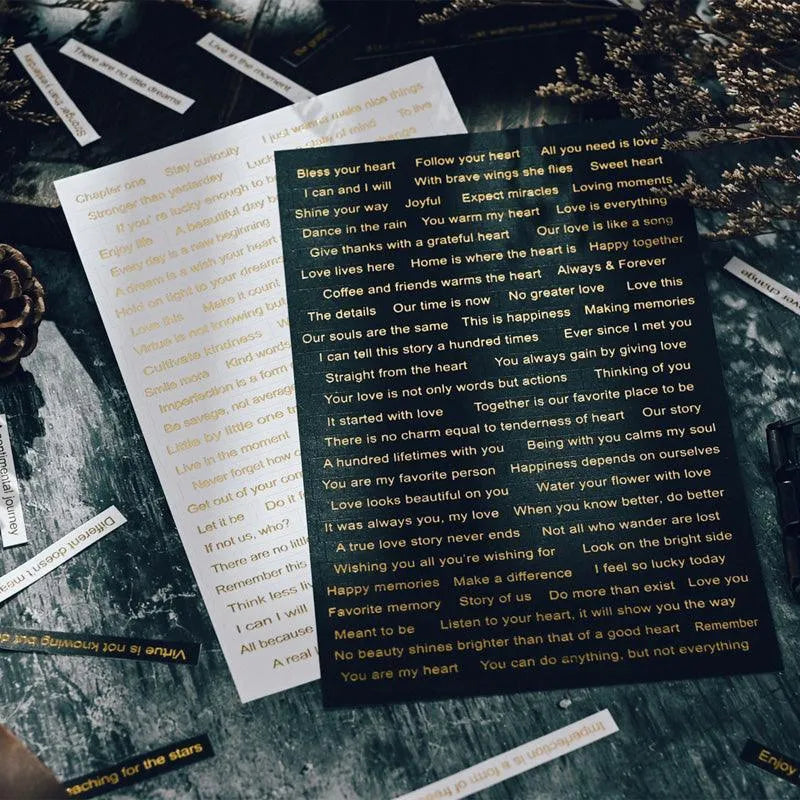 Stronger than yesterday
There are no little dreams
Live in the moment
I just wanna make nice things
Chapter one Stay curiosity
state of mind To live
Stronger than yesterday Luck
If you're lucky enough to b
Enjoy life A beautiful day b
Every day is a new beginning
A dream is a wish your heart
Hold on tight to your dreams
Love this Make it count
Virtue is not knowing but
Cultivate kindness
Smile more Kind words
Imperfection is a form
Be savage, not average
Little by little one tr
Live in the moment
Never forget how
Get out of your con
Let it be Do it f
If not us, who?
There are no little
Remember this
Think less liv
I can I will
All because
A real l
Bless your heart Follow your heart All you need is love
I can and I will With brave wings she flies Sweet heart
Shine your way Joyful Expect miracles Loving moments
Dance in the rain You warm my heart Love is everything
Give thanks with a grateful heart Our love is like a song
Love lives here Home is where the heart is Happy together
Coffee and friends warms the heart Always & Forever
The details Our time is now No greater love Love this
Our souls are the same This is happiness Making memories
I can tell this story a hundred times Ever since I met you
Straight from the heart You always gain by giving love
Your love is not only words but actions Thinking of you
It started with love Together is our favorite place to be
There is no charm equal to tenderness of heart Our story
A hundred lifetimes with you Being with you calms my soul
You are my favorite person Happiness depends on ourselves
Love looks beautiful on you Water your flower with love
It was always you, my love When you know better, do better
A true love story never ends Not all who wander are lost
Wishing you all you're wishing for Look on the bright side
Happy memories Make a difference I feel so lucky today
Favorite memory Story of us Do more than exist Love you
Meant to be Listen to your heart, it will show you the way
No beauty shines brighter than that of a good heart Remember
You are my heart You can do anything, but not everything
ver change
sentimental journey
Different doesn't mea
Virtue is not knowing but do
eaching for the stars
Imperfection is a form of free
Enjoy